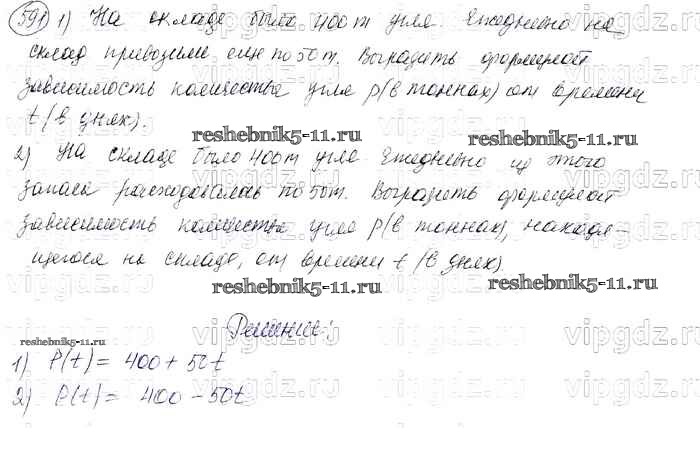 591 1) На складе было 400 т угля. Ежедневно на
склад привозили ещё по 50 т. Выразить формулой
зависимость количества угля p (в тоннах) от времени
t (в днях).
reshebnik5-11.ru reshebnik5-11.ru
2) На складе было 400 т угля. Ежедневно из этого
запаса расходовалось по 50 т. Выразить формулой
зависимость количества угля p (в тоннах), находя-
щегося на складе, от времени t (в днях).
reshebnik5-11.ru reshebnik5-11.ru
Решение:
reshebnik5-11.ru
1) P(t) = 400 + 50t
2) P(t) = 400 - 50t
vipgdz.ru